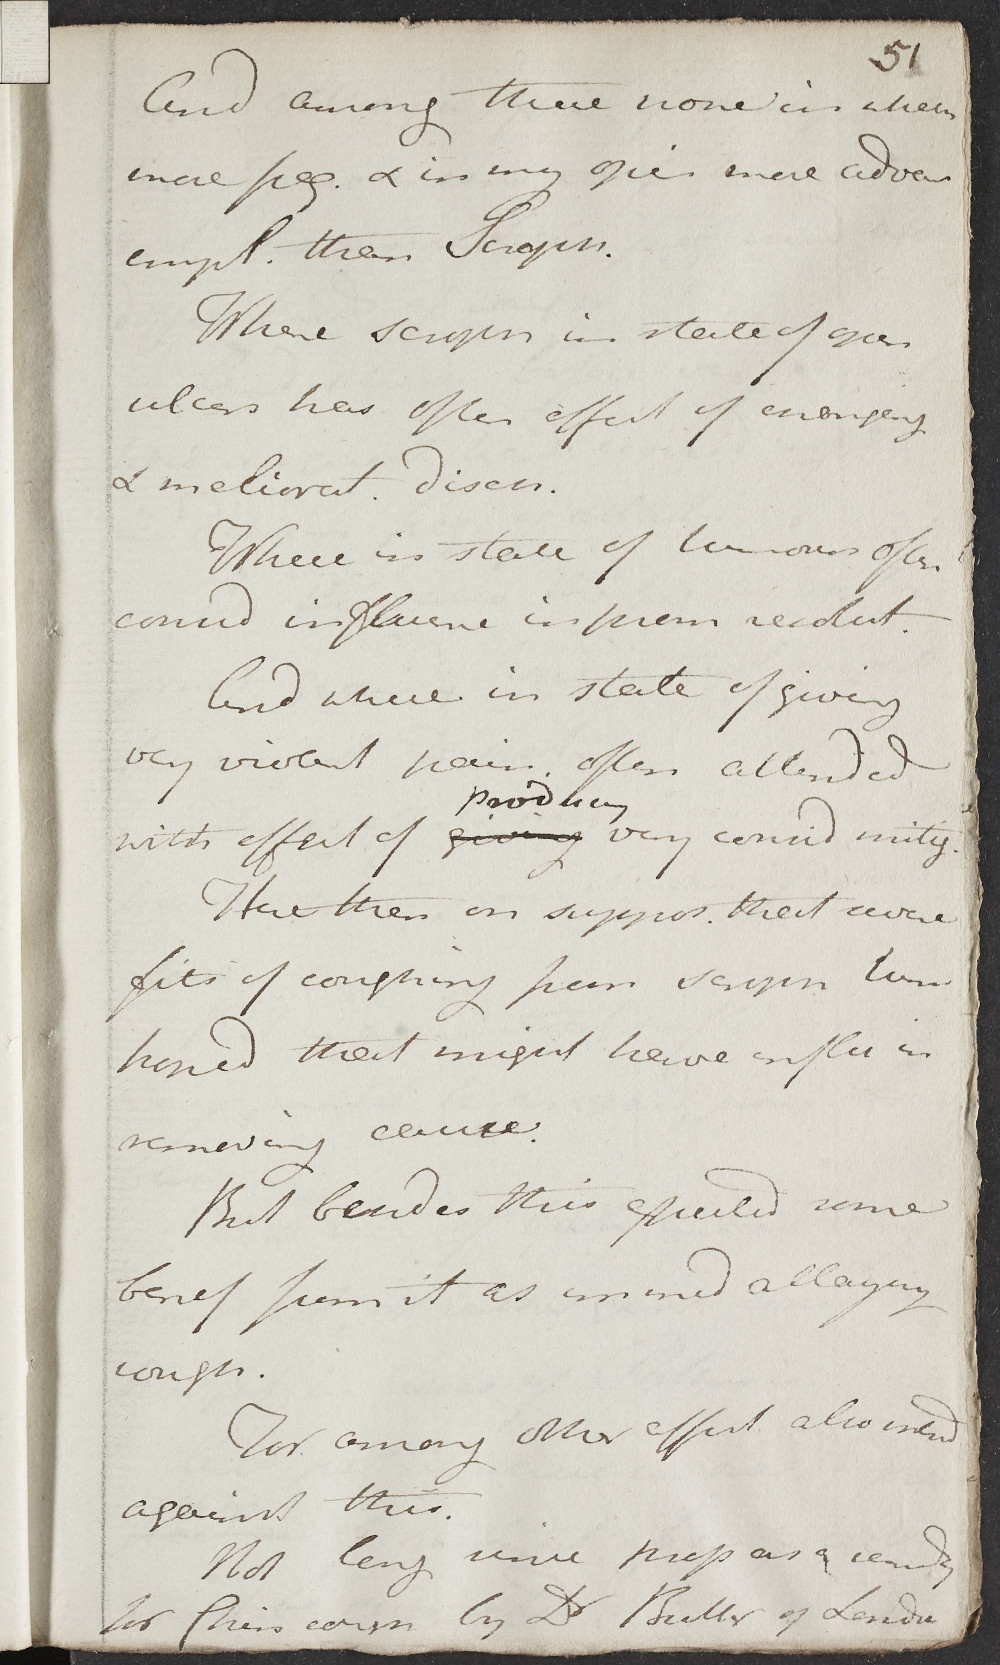 51
And among these none in whem
more freq. & in my opin more advan
empl. than Scroph.
Where scroph in state of open
ulcers has often effect of changing
& meliorat. disch.
Where in state of tumours often
consid influene in prom resolut.
And where in state of giving
very violent pain. often attended
producing
with effect of giving very consid mitig.
Here then on suppos. that were
fits of coughing from scroph tum
hoped that might have influ in
removing cause.
But besides this expected some
benef from it as immed allaying
cough.
For among other effect also intend
against this.
Not long since prop as a remedy
for chin cough by Dr Butter of Londn